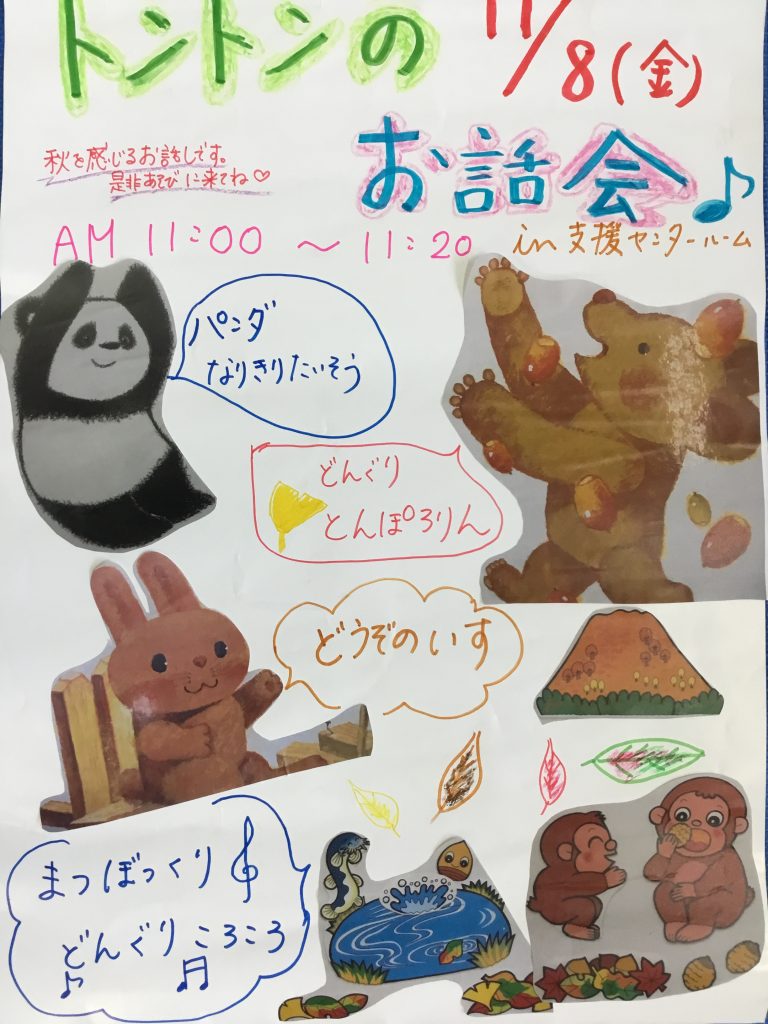 トントンの
11/8(金)
お話会♪
秋を感じるお話しです。
是非あそびに来てね♡
AM 11:00 ～ 11:20 in 支援センタールーム
パンダ
なりきりたいそう
どんぐり
とんぽろりん
どうぞのいす
まつぼっくり
どんぐりころころ